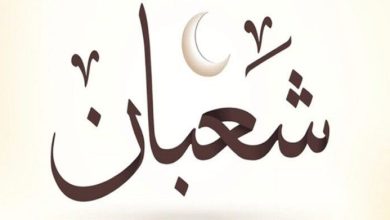 شَعبان